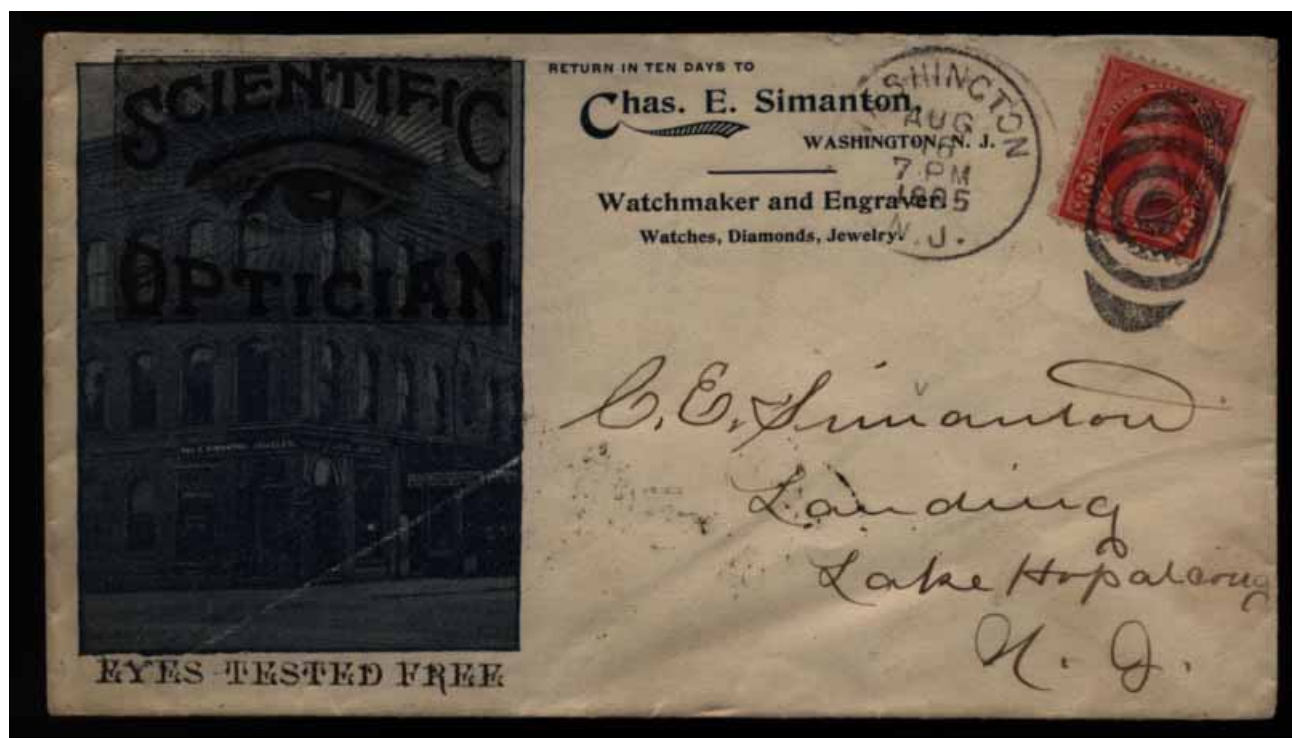 SCIENTIFIC
OPTICIAN
EYES TESTED FREE
RETURN IN TEN DAYS TO
Chas. E. Simanton,
WASHINGTON, N. J.
Watchmaker and Engraver.
Watches, Diamonds, Jewelry.
WASHINGTON
AUG
16
7 PM
1895
N.J.
C. E. Simanton
Landing
Lake Hopatcong
N. J.